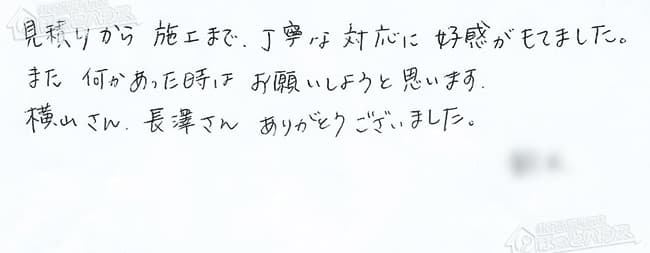 見積りから 施工まで、丁寧な対応に 好感がもてました。
また 何かあった時は お願いしようと思います.
横山さん、長澤さん ありがとうございました。